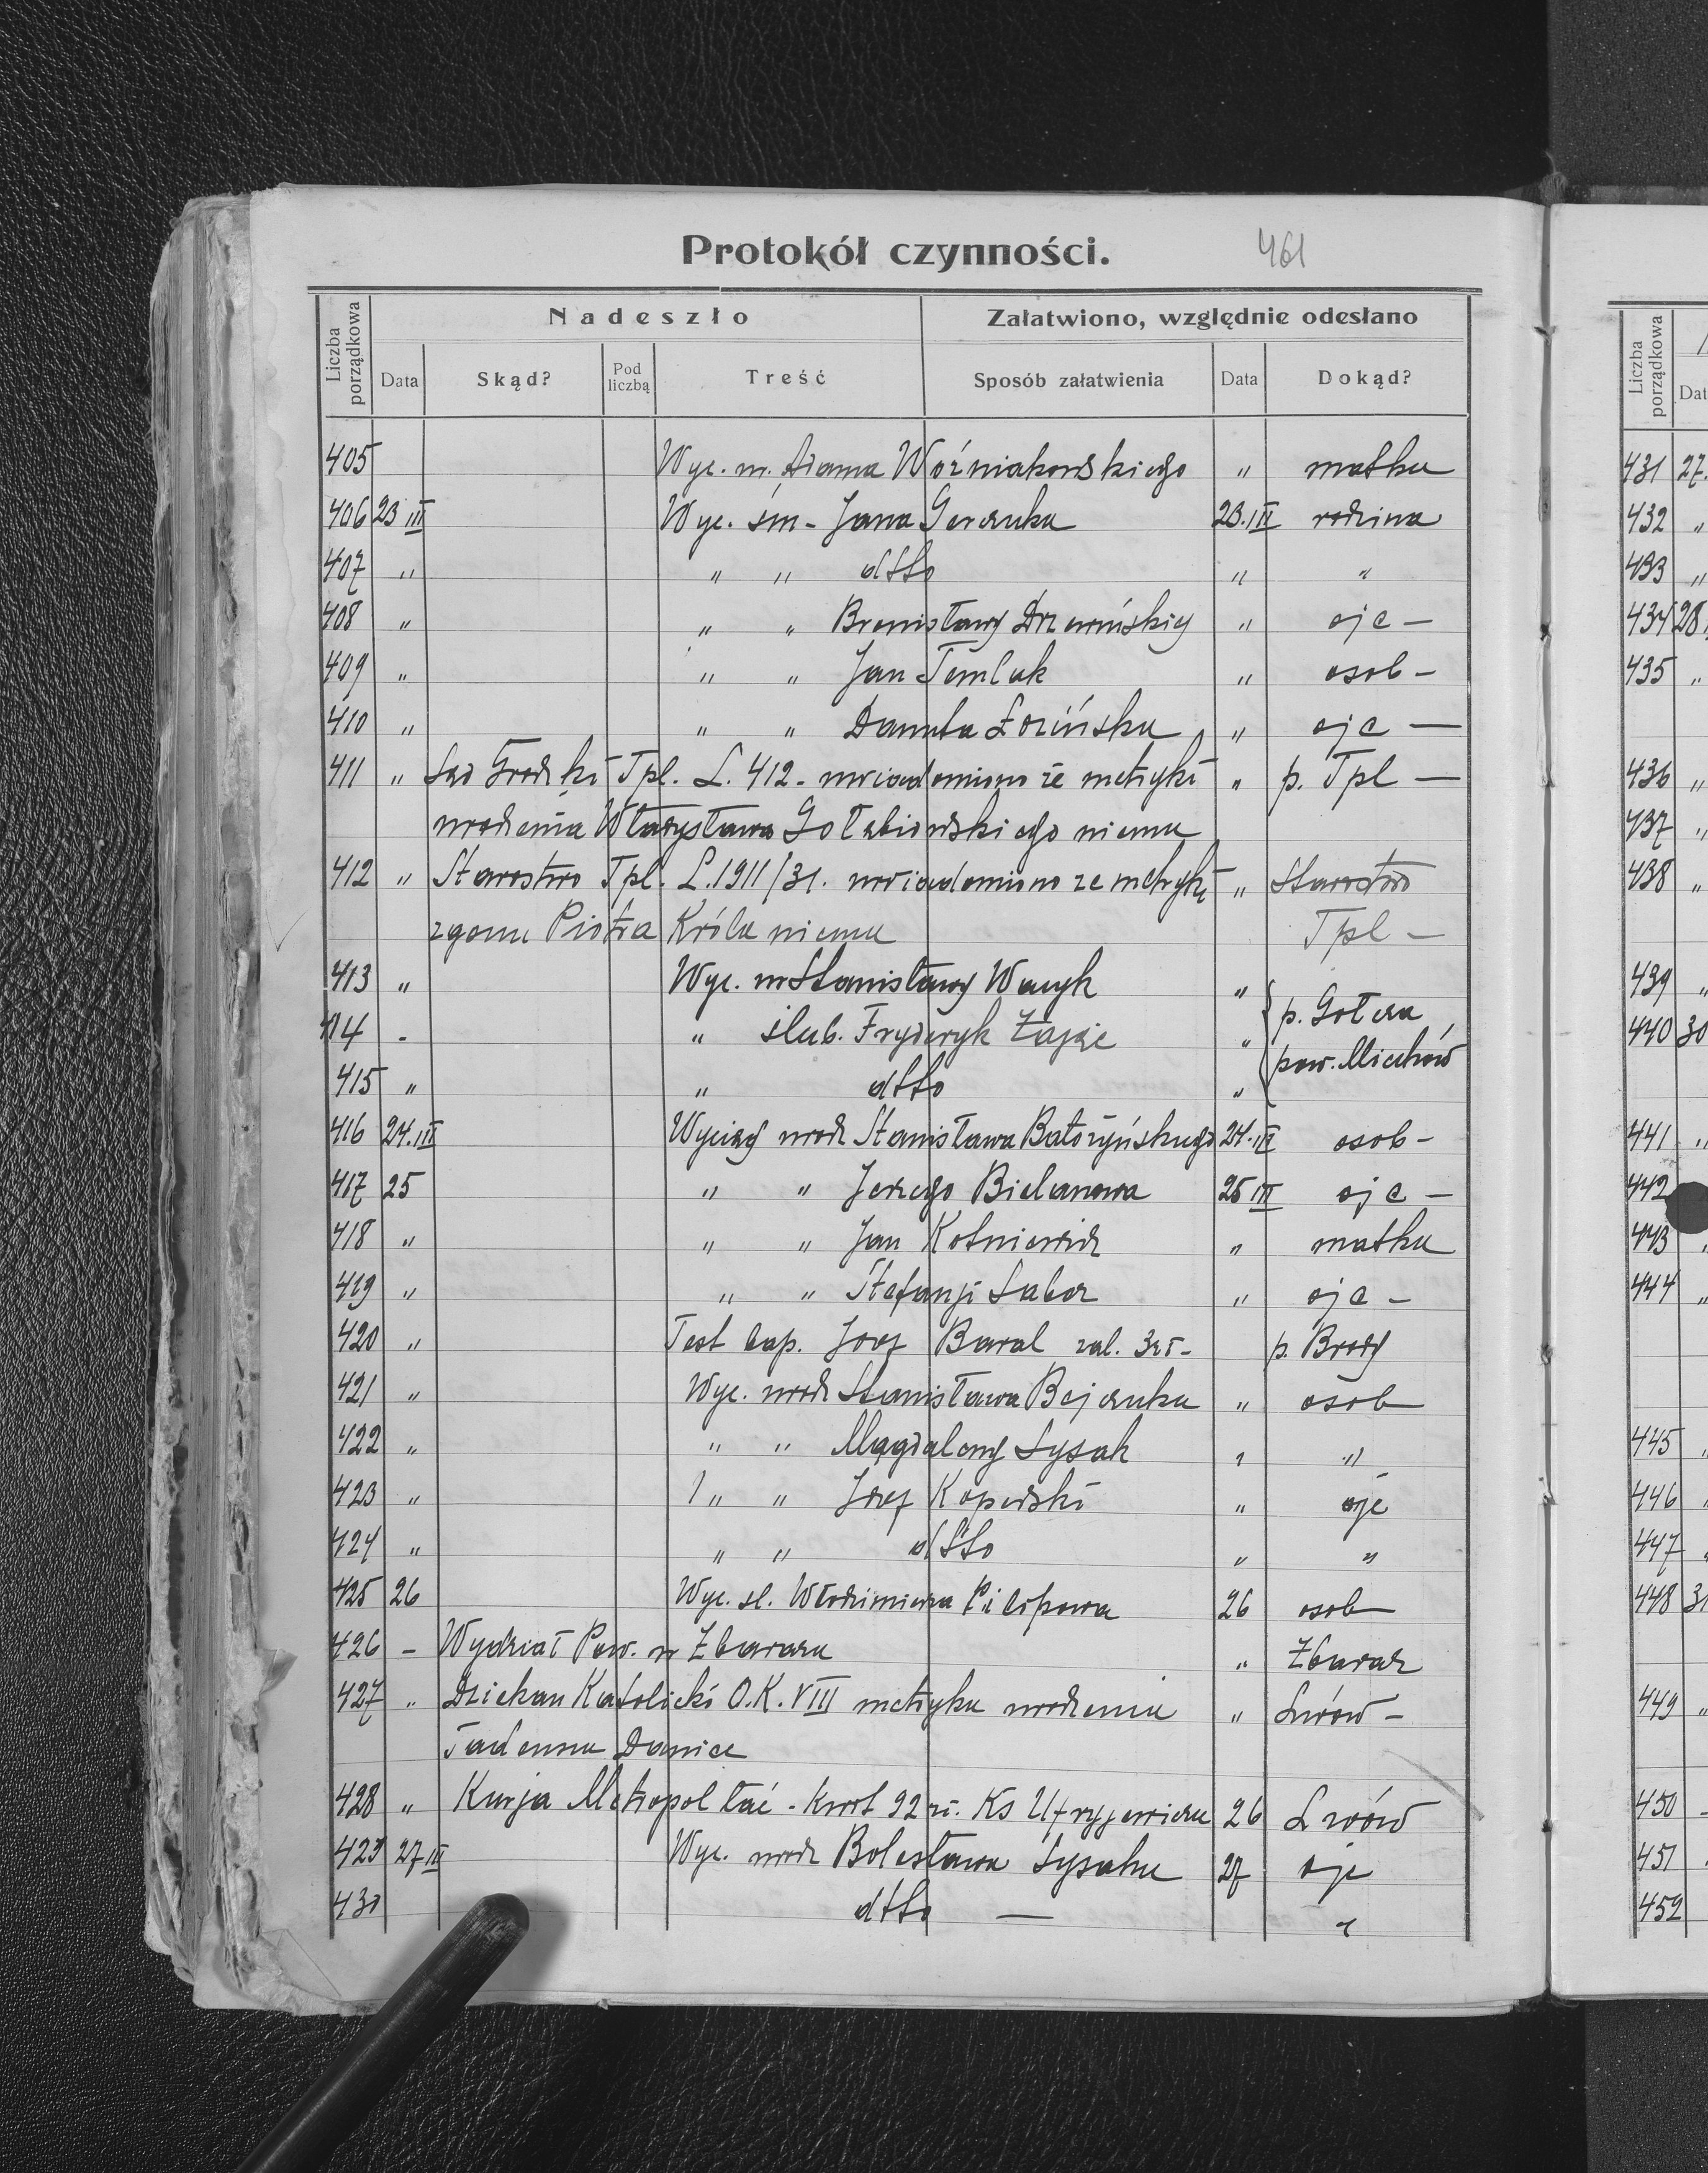 Protokół czynności. 461
Liczba porządkowa
Nadeszło
Załatwiono, względnie odesłano
Data Skąd? Pod liczbą Treść Sposób załatwienia Data Dokąd?
405 Wyc. ur. Adama Woźniakowskiego " matka
406 23 III Wyc. śm - Jana Gerczuka 23.III rodzina
407 " " " dtto " "
408 " " " Bronisławy Drzewińskiej " ojc —
409 " " " Jan Temluk " osob —
410 " " " Danuta Łozińska " ojc —
411 " Sąd Grodzki Tpl. L. 412 - uwiadomiono że metryki " p. Tpl —
urodzenia Władysława Gołębiowskiego niema
412 " Starostwo Tpl. L. 1911/31. uwiadomiono że metryki " Starostwo
zgonu Piotra Króla niema Tpl —
413 " Wyc. ur Stanisławy Wacyk " p. Gołcza
414 - " ślub. Fryderyk Zając " pow. Miechów
415 " " dtto "
416 24.III Wyciąg urodz Stanisława Batożyńskiego 24.III osob -
417 25 " " Jerzego Bielanowa 25 III ojc —
418 " " " Jan Kotniewicz " matka
419 " " " Stefanji Sabor " ojc -
420 " Test bap. Józef Baral zal. 3zł - p. Brody
421 " Wyc. urodz Stanisława Bejczuka " osob
422 " " " Magdaleny Łysak " "
423 " " " Józef Koperski " ojc
424 " " " dtto " "
425 26 Wyc. śl. Włodzimierza Pilipowa 26 osob
426 - Wydział Pow. w Zbarażu " Zbaraż
427 " Dziekan Katolicki O.K. VIII metryka urodzenia " Lwów -
Tadeusza
428 " Kurja Metropol łać - kwot 92 zł. Ks 26 Lwów
429 27 III Wyc. urodz Bolesława Łysaka 27 ojc
430 dtto — "
Liczba porządkowa
Dat
431 27.
432 "
433 "
434 28
435 "
436 "
437 "
438 "
439 "
440 30
441 "
442
443
444 "
445 "
446
447
448 31
449 "
450 -
451
452